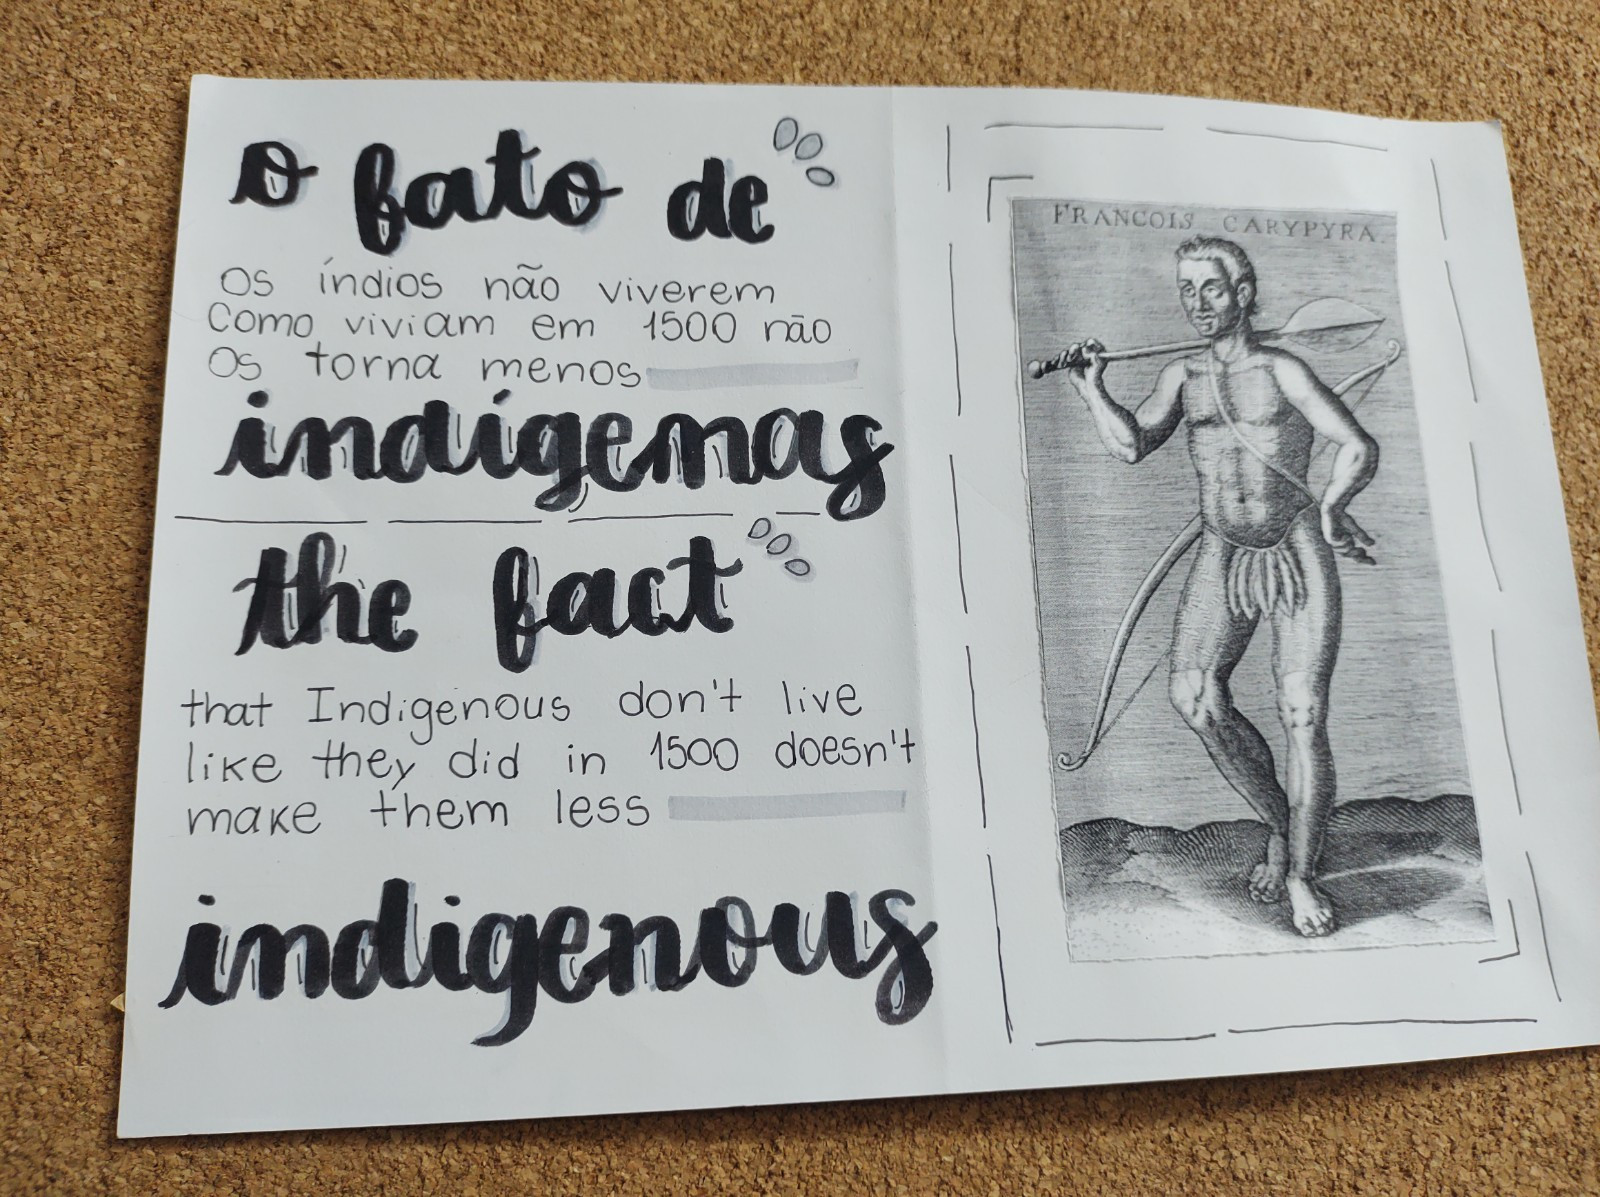 o fato de
Os índios não viverem
Como viviam em 1500 não
Os torna menos
indígenas
the fact
that Indigenous don't live
like they did in 1500 doesn't
make them less
indigenous
FRANCOIS CARYPYRA.